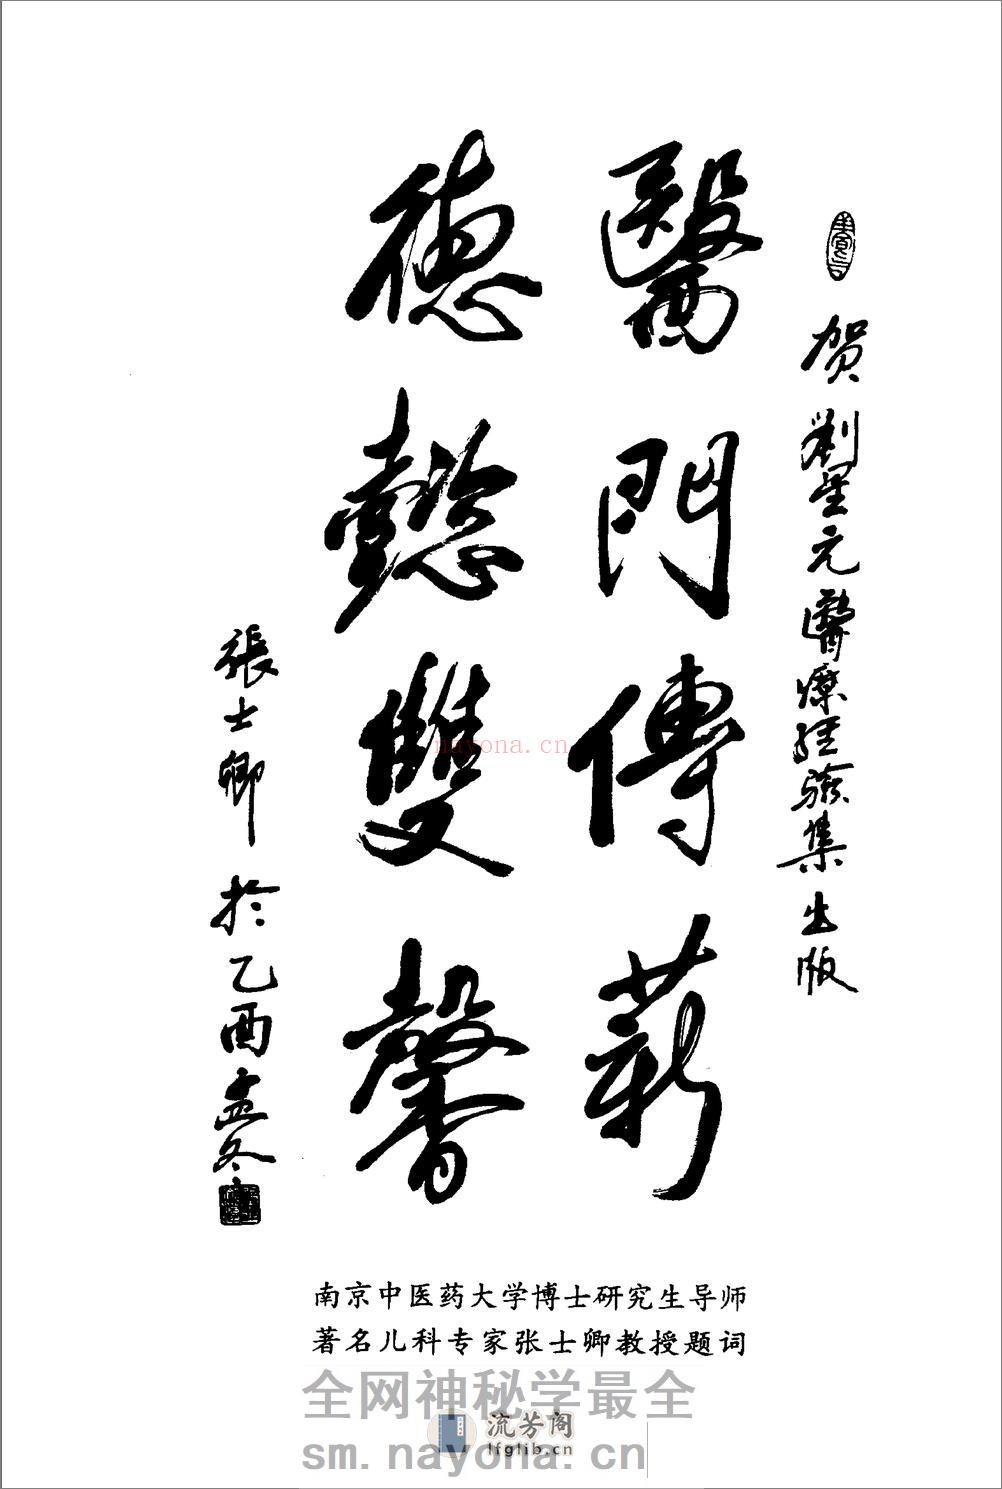 贺刘星元醫療经验集出版
醫門傳薪
德懿雙馨
張士卿於乙酉孟冬
南京中医药大学博士研究生导师
著名儿科专家张士卿教授题词
nayona.cn
全网神秘学最全
流芳阁
lfglib.cn
sm.nayona.cn